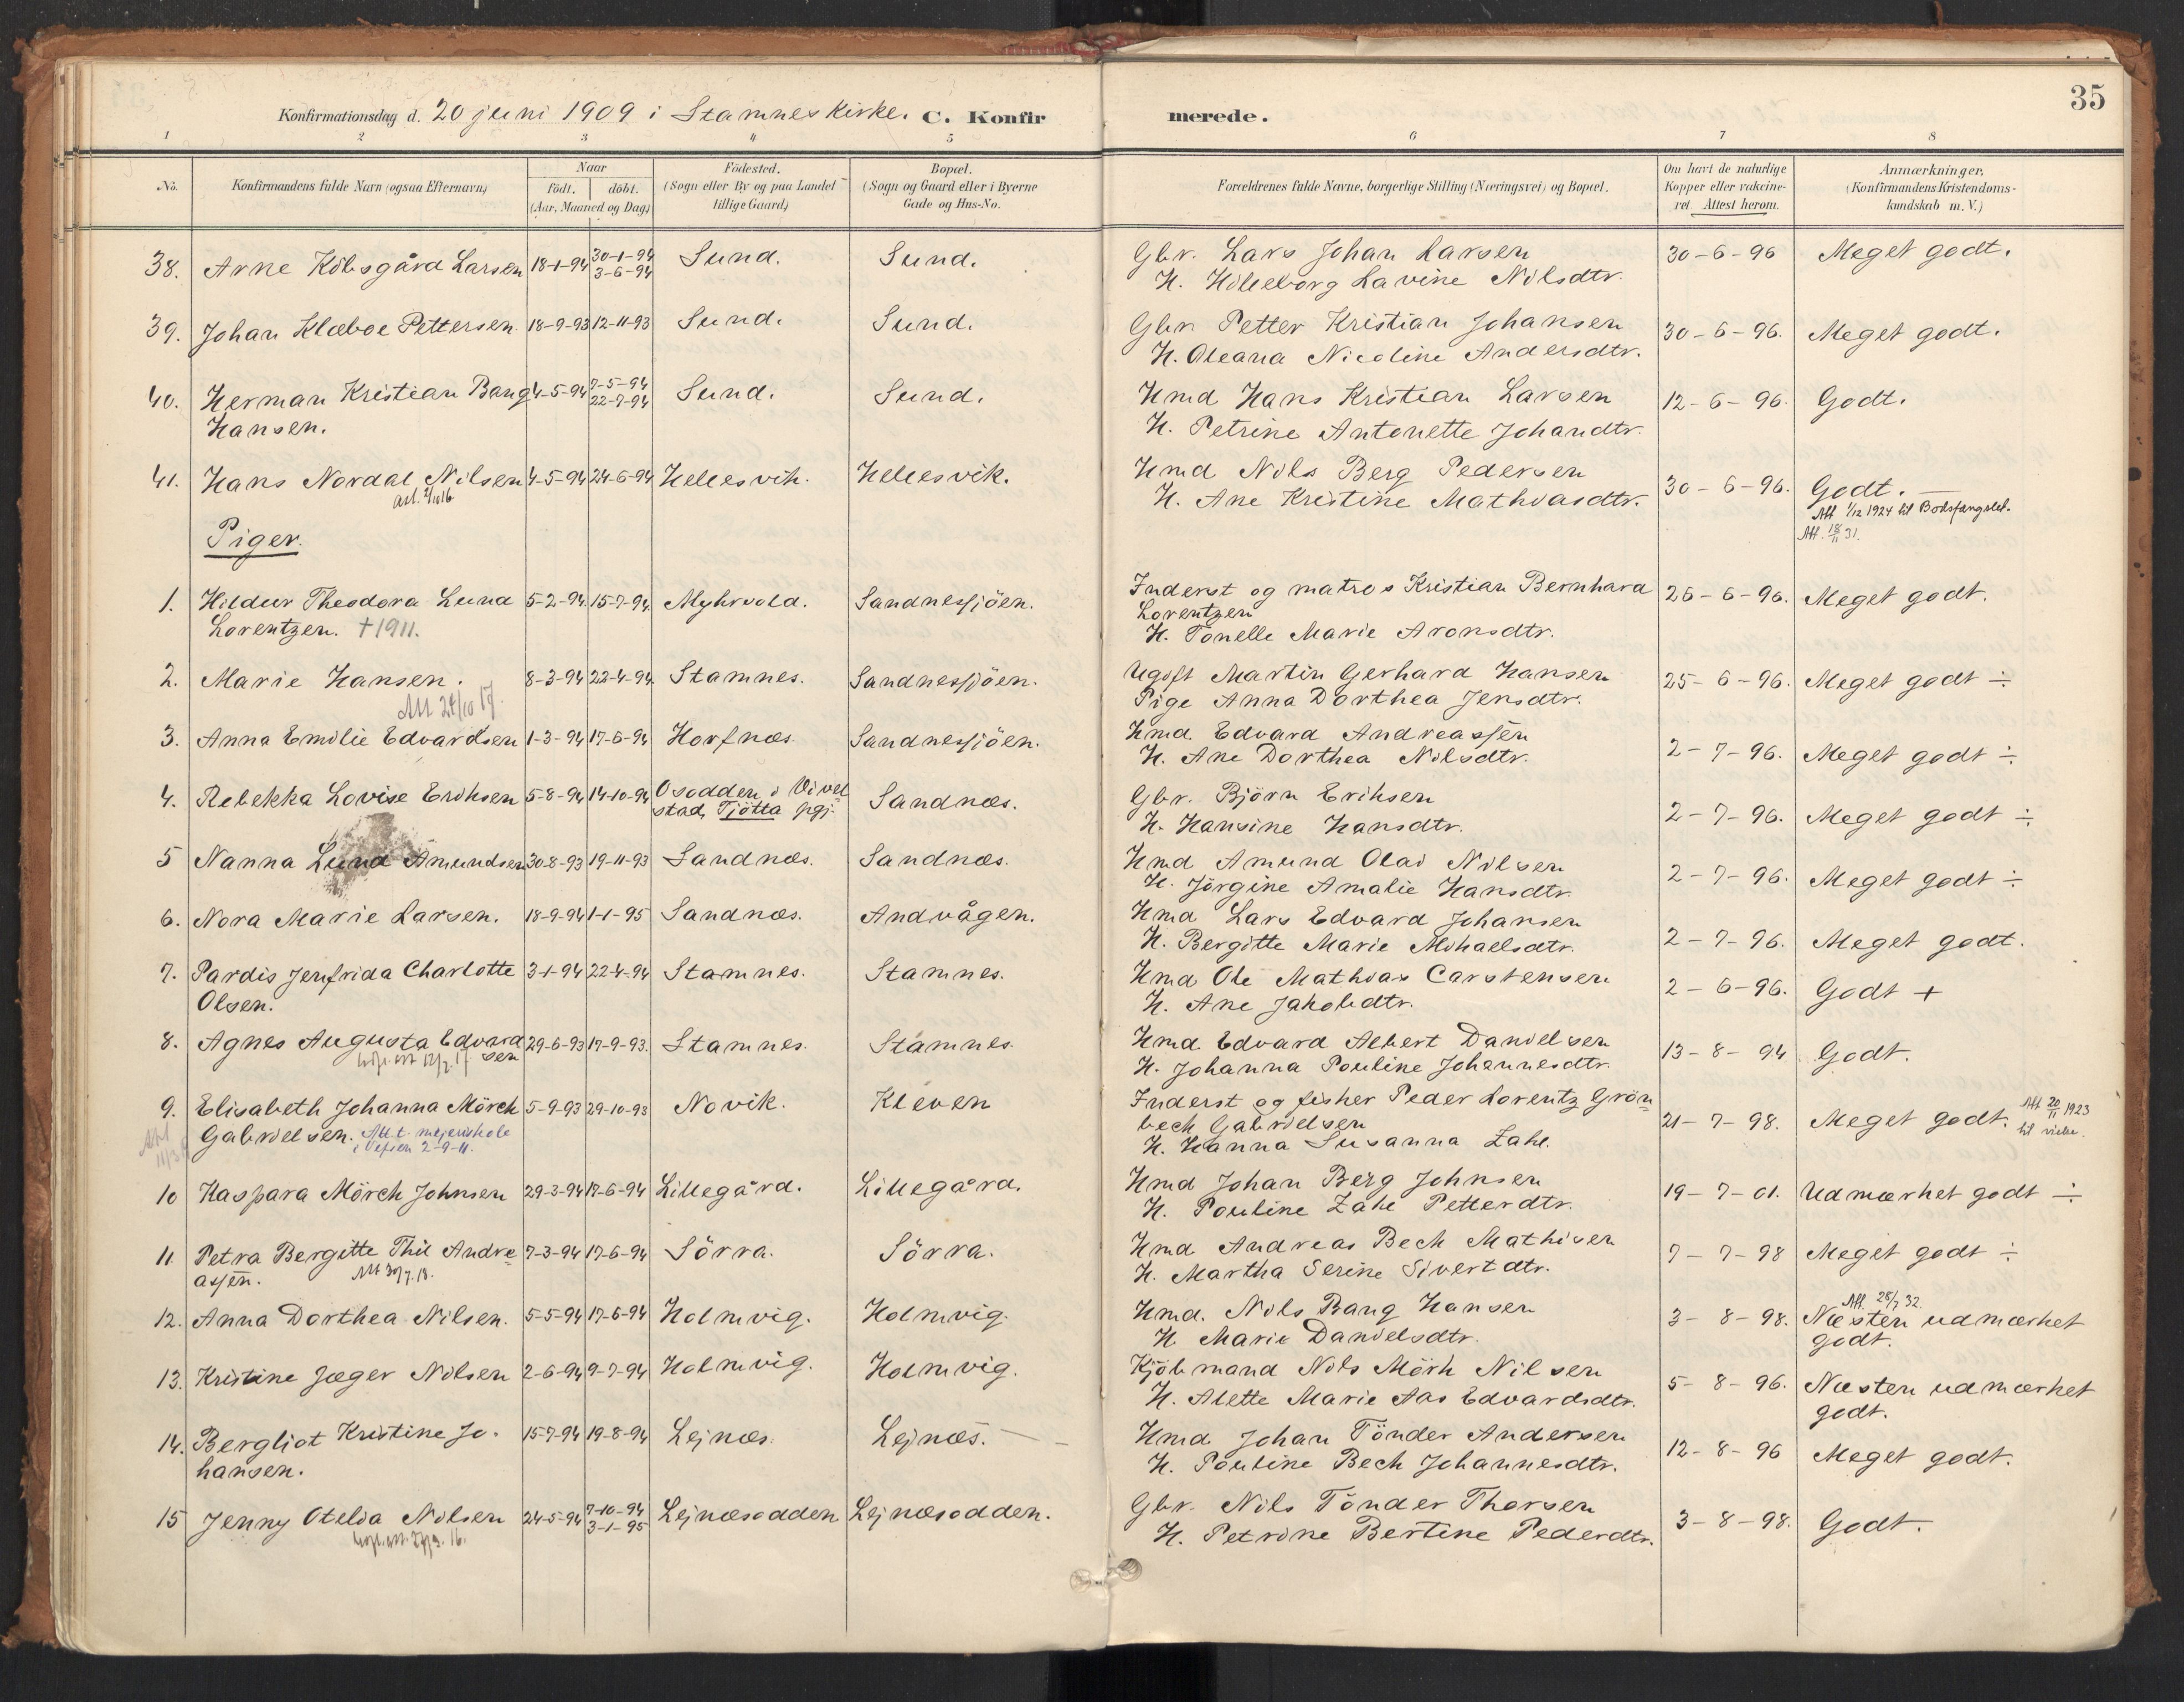 35
Konfirmationsdag d. 20 juni 1909 i Stamnes Kirke. C. Konfirmerede.
1 2 3 4 5 6 7 8
No. Konfirmandens fulde Navn (ogsaa Efternavn) Naar födt. döbt. (Aar, Maaned og Dag) Födested. (Sogn eller By og paa Landet tillige Gaard) Bopæl. (Sogn og Gaard eller i Byerne Gade og Hus-No. Forældrenes fulde Navne, borgerlige Stilling (Næringsvei) og Bopæl. Om havt de naturlige Kopper eller vakcineret. Attest herom. Anmærkninger. (Konfirmandens Kristendomskundskab m. V.)
38. Arne Kilsgård Larsen 18-1-94 30-1-94 Sund. Sund. Gbr. Lars Johan Larsen 30-6-96 Meget godt.
3-6-94 H. Hilleborg Lavine Nilsdtr.
39. Johan Klæboe Pettersen 18-9-93 12-11-93 Sund. Sund. Gbr. Petter Kristian Johansen 30-6-96. Meget godt.
H. Oleana Nicoline Andersdtr.
40. Herman Kristian Bang 4-5-94 7-5-94 Sund. Sund. Hmd Hans Kristian Larsen 12-6-96. Godt.
Hansen. 22-7-94 H. Petrine Antonette Johandtr.
41. Hans Nordal Nilsen 4-5-94 24-6-94 Hellesvik. Hellesvik. Hmd Nils Berg Pedersen 30-6-96. Godt.
H. Ane Kristine Mathiasdtr.
Att 1/12 1924 til Bodsfængslet.
Att. 18/11 31.
Piger.
1. Hildur Theodora Lund 5-2-94 15-7-94 Myhrvold. Sandnessjöen. Inderst og matros Kristian Bernhard 26-6-96. Meget godt.
Lorentzen. †1911. Lorentzen
H. Tonelle Marie Aronsdtr.
2. Marie Hansen. 8-3-94 22-4-94 Stamnes. Sandnessjöen. Ugift Martin Gerhard Hansen 25-6-96. Meget godt ÷
Att 24/10 17 Pige Anna Dorthea Jensdtr.
3. Anna Emilie Edvardsen 1-3-94 17-6-94 Horfnæs Sandnessjöen. Hmd. Edvard Andreassen 2-7-96. Meget godt ÷
H. Ane Dorthea Nilsdtr.
4. Rebekka Lovise Eriksen 5-8-94 14-10-94 Osodden i Vivel Sandnæs. Gbr. Björn Eriksen 2-7-96. Meget godt ÷
stad, Tjötta pgj. H. Hansine Hansdtr.
5 Nanna Lund Amundsen 30-8-93 19-11-93 Sandnæs. Sandnæs. Hmd Amund Olai Nilsen 2-7-96. Meget godt ÷
H. Jörgine Amalie Hansdtr.
6. Nora Marie Larsen. 18-9-94 1-1-95 Sandnæs. Andvågen. Hmd Lars Edvard Johansen 2-7-96. Meget godt.
H. Bergitte Marie Mihaelsdtr.
7. Pardis Jenfrida Charlotte 3-1-94 22-4-94 Stamnes. Stamnes. Hmd Ole Mathias Carstensen 2-6-96. Godt +
Olsen. H. Ane Jakobdtr.
8. Agnes Augusta Edvard 29-6-93 17-9-93. Stamnes. Stamnes. Hmd. Edvard Albert Danielsen 13-8-94 Godt.
sen H. Johanna Pouline Johannesdtr.
9. Elisabeth Johanna Mörch 5-9-93 29-10-93 Novik. Kleven Inderst og fisker Peder Lorentz Grön 21-7-98. Meget godt. Att 20/11 1923
Gabrielsen. Att t. mejeriskole bech Gabrielsen til vielse.
i Vefsen 2-9-11. H. Hanna Susanna Zahl.
10 Kaspara Mörch Johnsen 29-3-94 17-6-94 Lillegård. Lillegård. Hmd Johan Berg Johnsen 19-7-01. Udmærket godt ÷
H. Pouline Zahl Petterdtr.
11 Petra Bergitte Thil Andre 7-3-94 17-6-94 Sörra. Sörra. Hmd Andreas Bech Mathisen 7-7-98 Meget godt ÷
assen. Att 30/7.18. H. Martha Serine Sivertdtr.
12. Anna Dorthea Nilsen. 5-5-94 17-6-94 Holmvig. Holmvig. Hmd. Nils Bang Hansen 3-8-98. Att. 28/7 32. Næsten udmærket
H. Marie Danielsdtr. godt.
13. Kristine Jæger Nilsen 2-6-94 9-7-94 Holmvig. Holmvig. Kjöbmand Nils Mörk Nilsen 5-8-96. Næsten udmærket
H. Alette Marie Aas Edvardsdtr. godt.
14. Bergliot Kristine Jo- 15-7-94 19-8-94 Lejnæs. Lejnæs. Hmd Johan Tönder Andersen 12-8-96 Meget godt.
hansen. H. Pouline Bech Johannesdtr.
15 Jenny Otelia Nilsen 24-5-94 7-10-94 Lejnæsodden Lejnæsodden. Gbr. Nils Tönder Thorsen 3-8-98. Godt.
3-1-95 H. Petrine Bertine Pederdtr.